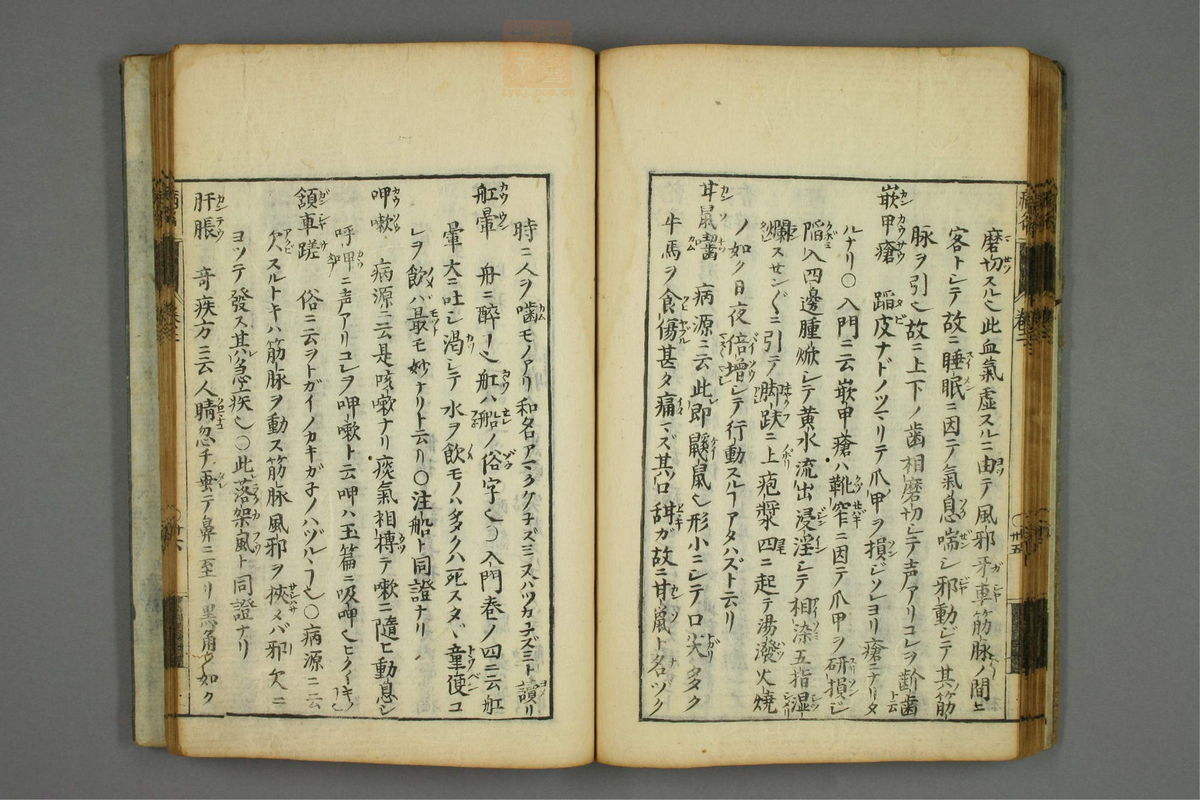 磨切スル也此血氣虚スルニ由テ風邪牙車筋脉ノ間ニ
客トシテ故ニ睡眠ニ因テ氣息喘シ邪動ジテ其筋
脉ヲ引也故ニ上下ノ歯相磨切シテ声アリコレヲ齘歯
嵌甲瘡 蹈皮ナドノツマリテ爪甲ヲ損ジソレヨリ瘡ニナリタ
ルナリ〇入門ニ云嵌甲瘡ハ靴窄ニ因テ爪甲ヲ研損ジ
陷入四邊腫焮シテ黄水流出浸淫シテ相染五指湿
爛スサンく゛ニ引テノ脚趺ニ上疱漿四ニ起テ湯潑火燒
ノ如ク日夜倍増シテ行動スルヿアタハズト云リ
甘鼠嚙 病源ニ云此即鼷鼠也形小ニシテ口尖タタク
牛馬ヲ食傷甚タ痛マズ其口甜ガ故ニ甘鼠ト名ヅク
時ニ人ヲ嚙モノアリ和名アマクチネズミ又ハツカネズミト讀リ
舡暈 舟ニ醉ヿ也舡ハ船ノ俗字也〇入門巻ノ四ニ云舡
暈大ニ吐シ渇シテ水ヲ飲モノハタタク死スタヾ童便コ
レヲ飲バ最モ妙ナリト云リ〇注船ト同證ナリ
呷嗽 病源ニ云是咳嗽ナリ痰氣相摶テ嗽ニ隨ヒ動息シ
呼呷ニ声アリコレヲ呷嗽ト云呷ハ玉篇ニ吸呷也
頷車蹉 俗ニ云ヲトガイノカキガネノハヅルヽヿ也〇病源ニ云
欠スルトキハ筋脉ヲ動ス筋脉風邪ヲ挾メバ邪欠ニ
ヨツテ發ス其急疾也〇此落架風ト同證ナリ
肝脹 奇疾方ニ云人睛忽チ垂テ鼻ニ至リ黒角ノ如ク